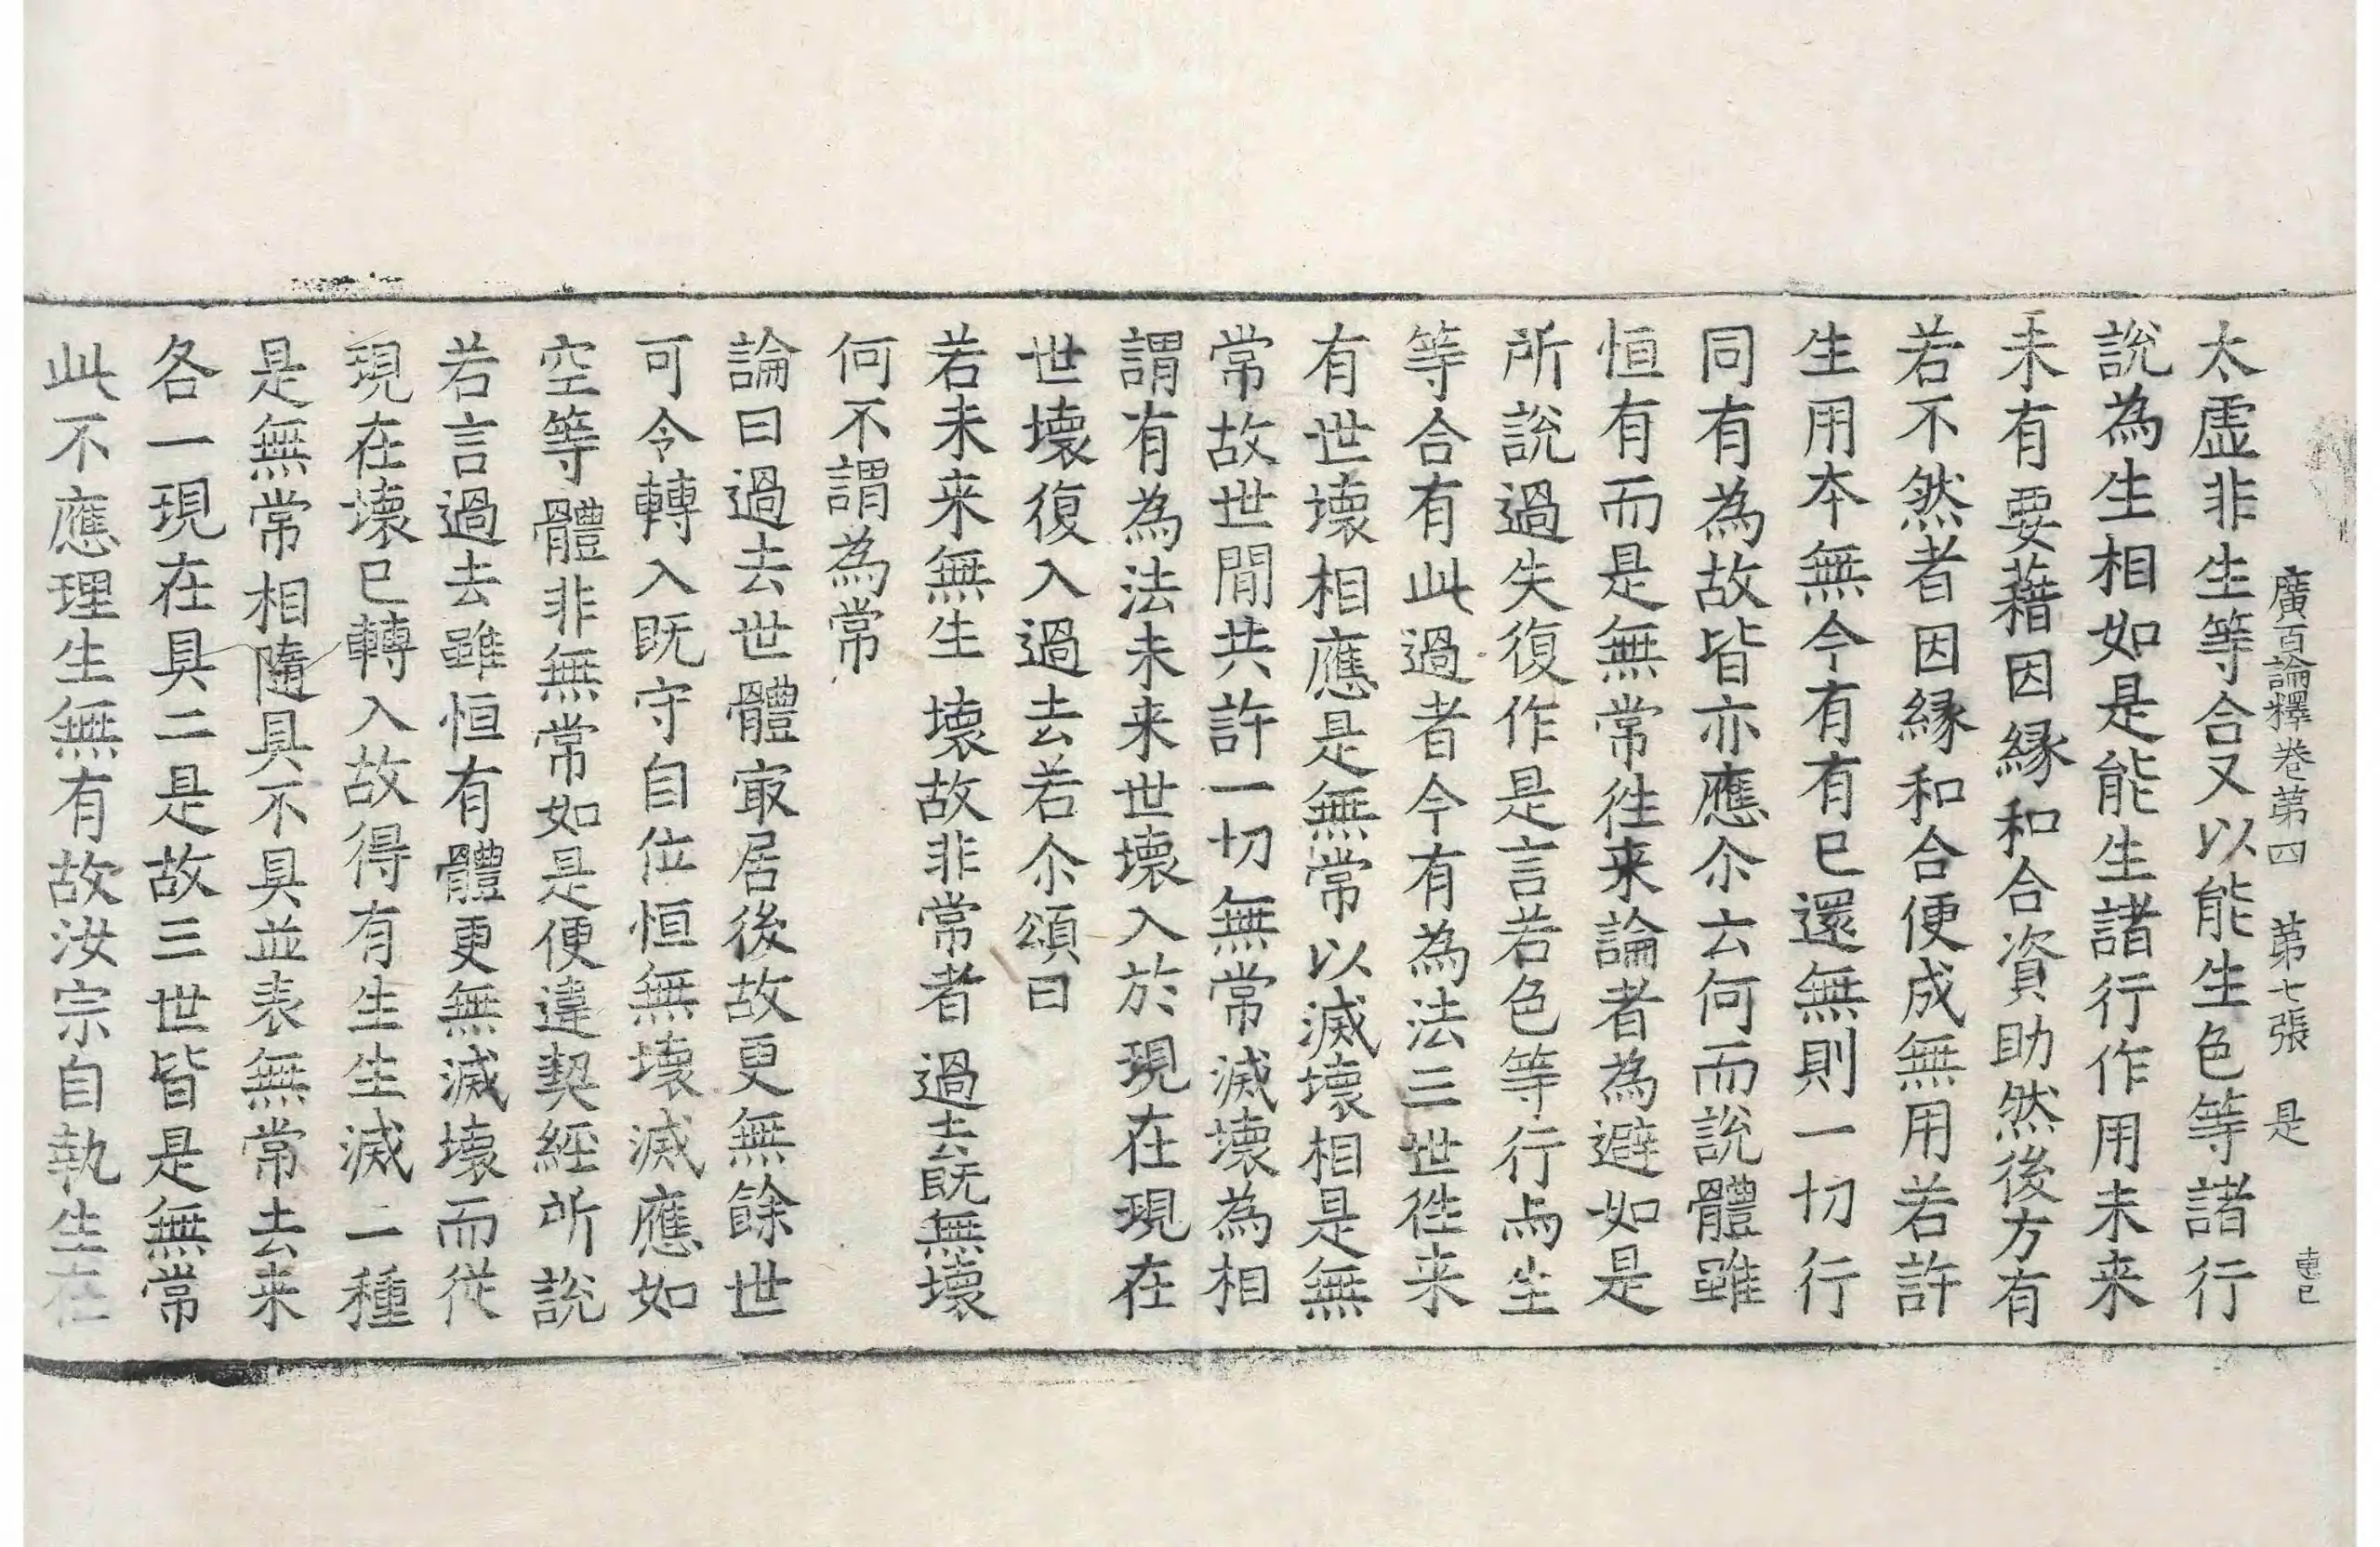 廣百論釋卷第四　第七張　是
太虛非生等合又以能生色等諸行
說為生相如是能生諸行作用未来
未有要藉因緣和合資助然後方有
若不然者因緣和合便成無用若許
生用本無今有有已還無則一切行
同有為故皆亦應尒云何而說體雖
恒有而是無常徃来論者為避如是
所說過失復作是言若色等行與生
等合有此過者今有為法三世徃来
有世壞相應是無常以滅壞相是無
常故世間共許一切無常滅壞為相
謂有為法未来世壞入於現在現在
世壞復入過去若尒頌曰
若未来無生　壞故非常者　過去既無壞
何不謂為常
論曰過去世體㝡居後故更無餘世
可令轉入既守自位恒無壞滅應如
空等體非無常如是便違契經所說
若言過去雖恒有體更無滅壞而從
現在壞已轉入故得有生生滅二種
是無常相隨具不具並表無常去来
各一現在具二是故三世皆是無常
此不應理生無有故汝宗自執生在